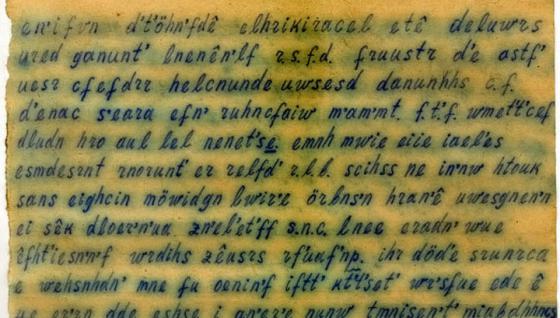 en'ifvn d't'öhn'fdê elhrikiracel etê deluwrs
ured ganunt' lnenên'lf r.s.f.d. fruustr d'e astf.'
uesr cfefdrr helcnunde uwsesd danunhhs c.f.
d'enac s'eara efn' ruhncfaiw m'am'mt. f.t.'f. wmet't'cef
dludn hro aul lel nenet'se. emnh mwie eiie iaeles
esmdesrnt rnorunt' er relfd' r.l.l. scihss ne in'nw htouk
sans eighcin möwidgn lwir'e örlnsn hran'ê uwesgnen'n
ei sêk dloer'n'ua. zn'el'et'ff s.n.c. lnee eradn' wue
êfht'iesn'n'f wrdihs zêusrs rfuaf'np. ihr död'e srunrca
e wehsnhdn' mne fu oenin'f iftt' kt't'set' wr'sfue ede ê